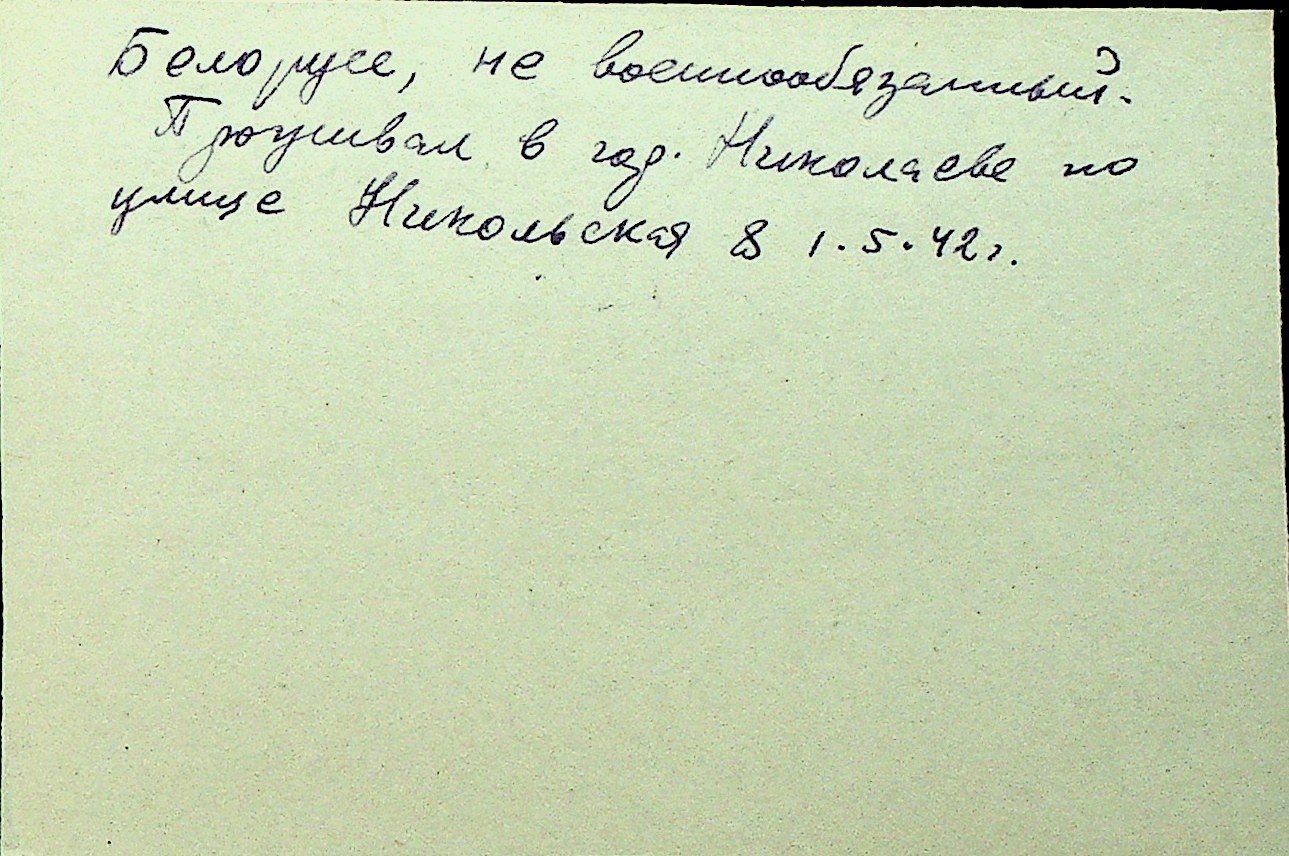 Белорусс, не военнообязанный.
Проживал в гор. Николаеве по
улице Никольская 8 1.5.42г.